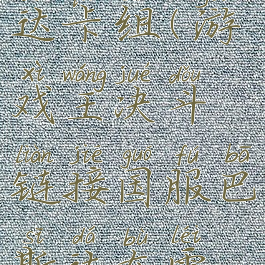 达卡组(游
xì wáng jué dòu
戏王决斗
liàn jiē guó fú bā
链接国服巴
sī dá bù léi